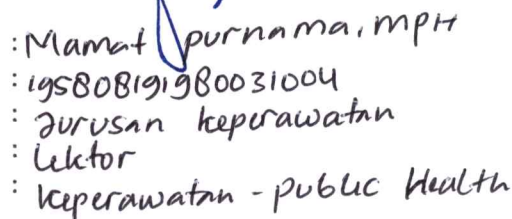 : Mamat purnama, MPH
: 195808191980031004
: Jurusan keperawatan
: Lektor
: keperawatan - public Health